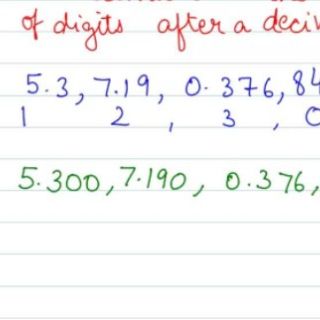 of digits after a deci
5.3, 7.19, 0.376, 84
1 2 , 3 , 0
5.300, 7.190, 0.376,